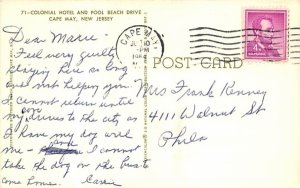 71—COLONIAL HOTEL AND POOL BEACH DRIVE
CAPE MAY, NEW JERSEY
Dear Marie -
Feel very guilty
staying here so long
and not helping you.
I cannot return until
my drives to the city as
I have my dog with
me - and I cannot
take the dog on the bus to
come home. Carrie
CAPE MAY
PM
POST CARD
Mrs Frank Kenney
4111 Walnut St
Phila